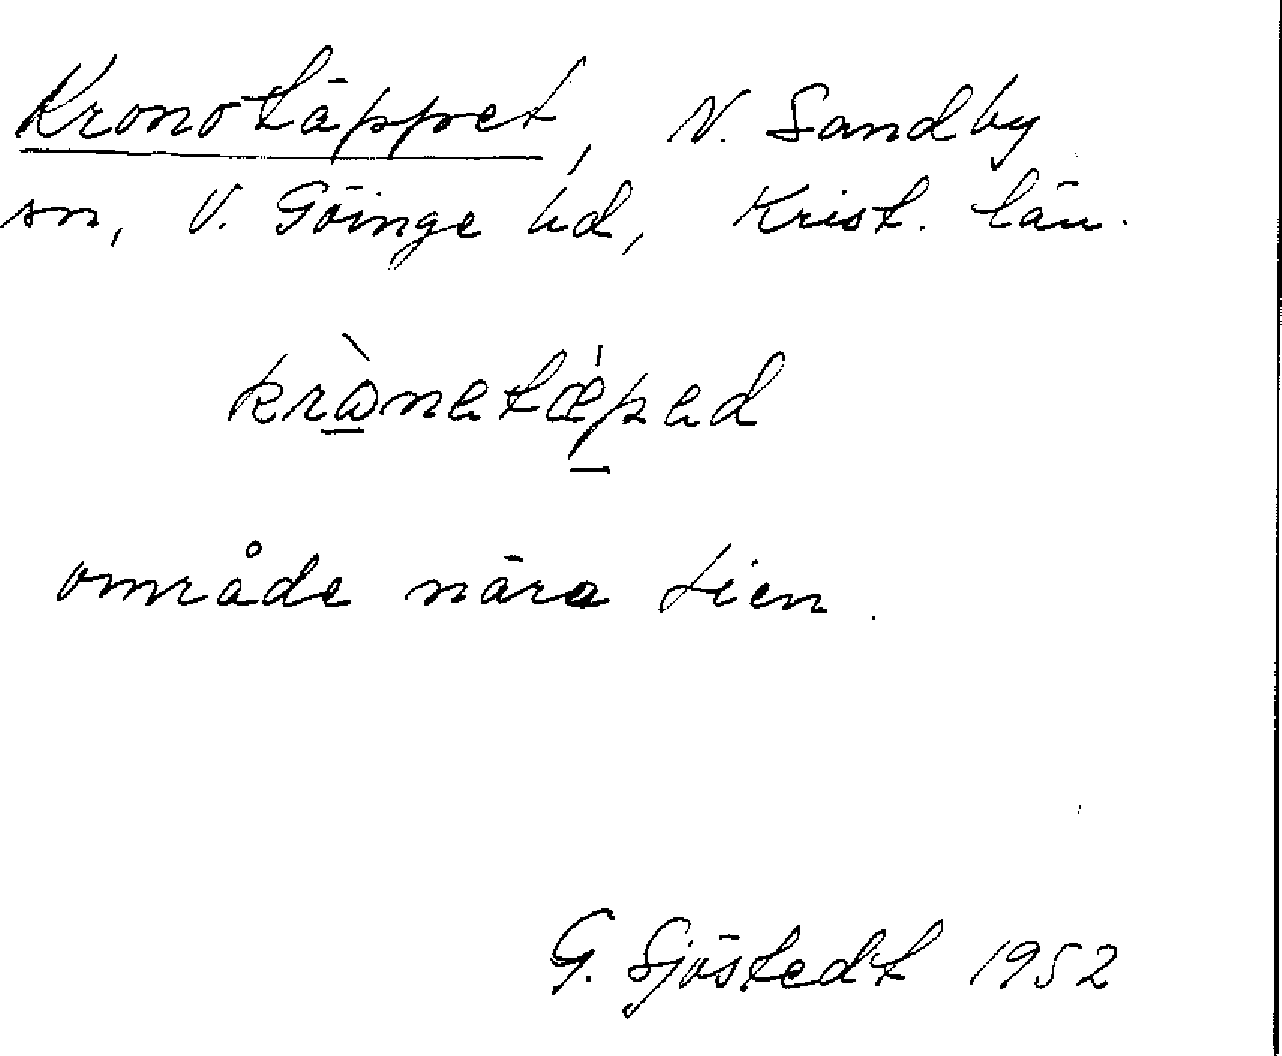 Kronotäppet, N. Sandby
sn, V. Göinge hd, Krist. län.
krɑ̀netǽped
område nära sien.
G. Sjöstedt 1952